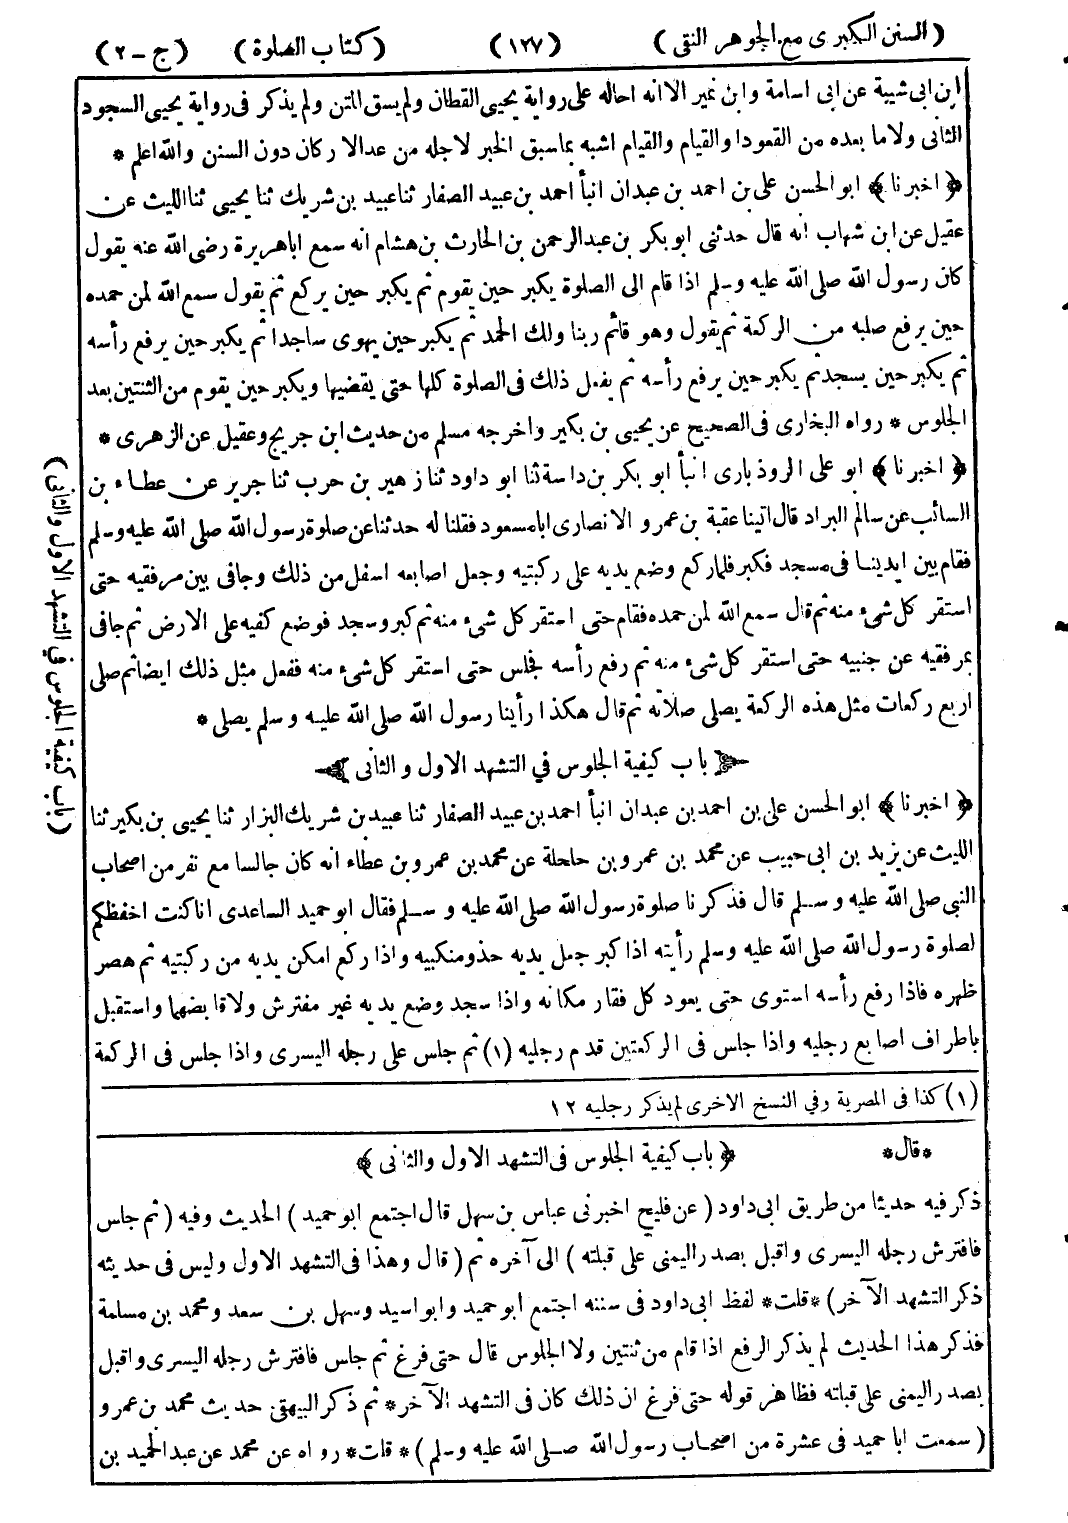 (السنن الكبرى مع الجوهر النقى) (١٢٧) (كتاب الصلوة) (ج - ٢)
ابن ابى شيبة عن ابى اسامة وابن نمير الا انه احاله على رواية يحيى القطان ولم يسق المتن ولم يذكر فى رواية يحيى السجود
الثانى ولا ما بعده من القعود او القيام والقيام اشبه بما سبق الخبر لاجله من عد الاركان دون السنن والله اعلم *
﴿ اخبرنا ﴾ ابو الحسن على بن احمد بن عبدان انبأ احمد بن عبيد الصفار ثنا عبيد بن شريك ثنا يحيى ثنا الليث عن
عقيل عن ابن شهاب انه قال حدثنى ابو بكر بن عبد الرحمن بن الحارث بن هشام انه سمع ابا هريرة رضى الله عنه يقول
كان رسول الله صلى الله عليه وسلم اذا قام الى الصلوة يكبر حين يقوم ثم يكبر حين يركع ثم يقول سمع الله لمن حمده
حين يرفع صلبه من الركعة ثم يقول وهو قائم ربنا ولك الحمد ثم يكبر حين يهوى ساجدا ثم يكبر حين يرفع رأسه
ثم يكبر حين يسجد ثم يكبر حين يرفع رأسه ثم يفعل ذلك فى الصلوة كلها حتى يقضيها ويكبر حين يقوم من الثنتين بعد
الجلوس * رواه البخارى فى الصحيح عن يحيى بن بكير واخرجه مسلم من حديث ابن جريج وعقيل عن الزهرى *
﴿ اخبرنا ﴾ ابو على الروذبارى انبأ ابو بكر بن داسة ثنا ابو داود ثنا زهير بن حرب ثنا جرير عن عطاء بن
السائب عن سالم البراد قال اتينا عقبة بن عمرو الانصارى ابا مسعود فقلنا له حدثنا عن صلوة رسول الله صلى الله عليه وسلم
فقام بين ايدينا فى مسجد فكبر فلما ركع وضع يديه على ركبتيه وجعل اصابعه اسفل من ذلك وجافى بين مرفقيه حتى
استقر كل شىء منه ثم قال سمع الله لمن حمده فقام حتى استقر كل شىء منه ثم كبر وسجد فوضع كفيه على الارض ثم جافى
بمرفقيه عن جنبيه حتى استقر كل شىء منه ثم رفع رأسه فجلس حتى استقر كل شىء منه ففعل مثل ذلك ايضا ثم صلى
اربع ركعات مثل هذه الركعة يصلى صلاته ثم قال هكذا رأينا رسول الله صلى الله عليه وسلم يصلى *
باب كيفية الجلوس في التشهد الاول والثانى
﴿ اخبرنا ﴾ ابو الحسن على بن احمد بن عبدان انبأ احمد بن عبيد الصفار ثنا عبيد بن شريك البزار ثنا يحيى بن بكير ثنا
الليث عن يزيد بن ابى حبيب عن محمد بن عمرو بن حلحلة عن محمد بن عمرو بن عطاء انه كان جالسا مع نفر من اصحاب
النبى صلى الله عليه وسلم قال فذكرنا صلوة رسول الله صلى الله عليه وسلم فقال ابو حميد الساعدى انا كنت احفظكم
لصلوة رسول الله صلى الله عليه وسلم رأيته اذا كبر جعل يديه حذو منكبيه واذا ركع امكن يديه من ركبتيه ثم هصر
ظهره فاذا رفع رأسه استوى حتى يعود كل فقار مكانه واذا سجد وضع يديه غير مفترش ولا قابضهما واستقبل
باطراف اصابع رجليه واذا جلس فى الركعتين قدم رجليه (١) ثم جلس على رجله اليسرى واذا جلس فى الركعة
(١) كذا فى المصرية وفي النسخ الاخرى لم يذكر رجليه ١٢
*قال* ﴿ باب كيفية الجلوس فى التشهد الاول والثانى ﴾
ذكر فيه حديثا من طريق ابى داود (عن فليح اخبرنى عباس بن سهل قال اجتمع ابو حميد) الحديث وفيه (ثم جلس
فافترش رجله اليسرى واقبل بصدر اليمنى على قبلته) الى آخره ثم (قال وهذا فى التشهد الاول وليس فى حديثه
ذكر التشهد الآخر) *قلت* لفظ ابى داود فى سننه اجتمع ابو حميد وابو اسيد وسهل بن سعد ومحمد بن مسلمة
فذكر هذا الحديث لم يذكر الرفع اذا قام من ثنتين ولا الجلوس قال حتى فرغ ثم جلس فافترش رجله اليسرى واقبل
بصدر اليمنى على قبلته فظاهر قوله حتى فرغ ان ذلك كان فى التشهد الآخر * ثم ذكر البيهقى حديث محمد بن عمرو
(سمعت ابا حميد فى عشرة من اصحاب رسول الله صلى الله عليه وسلم) * قلت * رواه عن محمد عن عبد الحميد بن
(باب كيفية الجلوس في التشهد الاول والثانى)